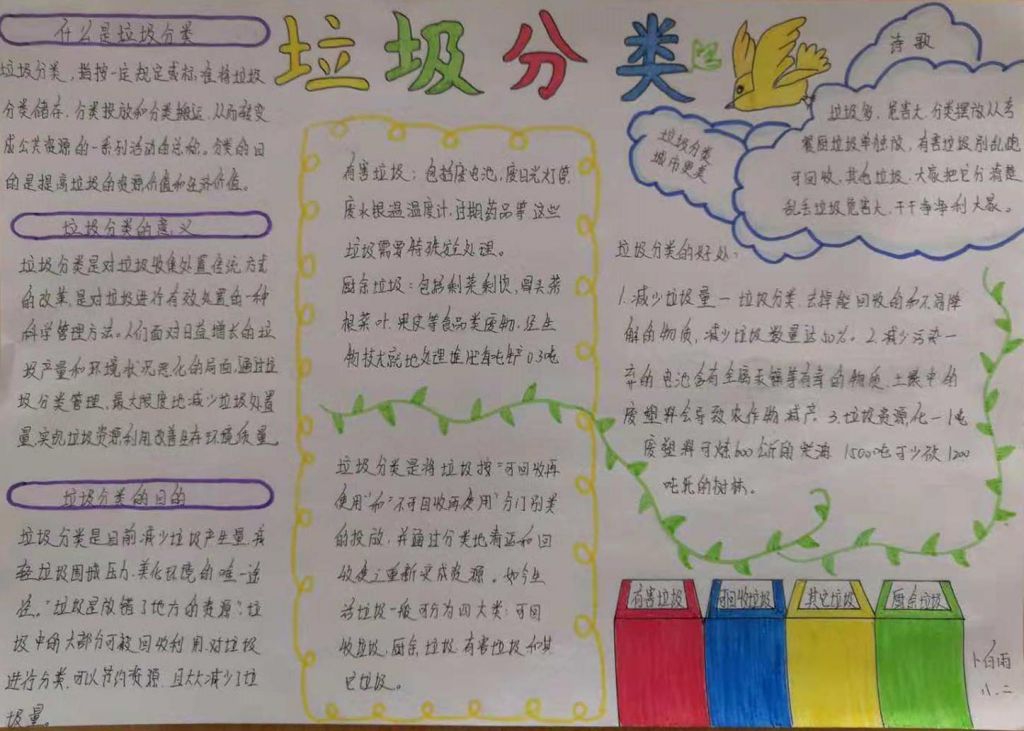 垃圾分类
什么是垃圾分类
垃圾分类,指按一定规定或标准将垃圾
分类储存,分类投放和分类搬运,从而转变
成公共资源的一系列活动的总称。分类的目
的是提高垃圾的资源价值和经济价值。
垃圾分类的意义
垃圾分类是对垃圾收集处置传统方式
的改革,是对垃圾进行有效处置的一种
科学管理方法。人们面对日益增长的垃
圾产量和环境状况恶化的局面,通过垃
圾分类管理,最大限度地减少垃圾处置
量,实现垃圾资源利用改善生存环境质量
垃圾分类的目的
垃圾分类是目前减少垃圾产生量,减
轻垃圾围城压力,美化环境的唯一途
径。"垃圾是放错了地方的资源",垃
圾中的大部分可被回收利用,对垃圾
进行分类,可以节约资源,且大大减少了垃
圾量。
有害垃圾:包括废电池,废日光灯管,
废水银温温度计,过期药品等这些
垃圾需要特殊安全处理。
厨余垃圾:包括剩菜剩饭,骨头菜
根菜叶,果皮等食品类废物,经生
物技术就地处理堆肥每吨产0.3吨
垃圾分类是将垃圾按"可回收再
使用"和"不可回收再使用"分门别类
的投放,并通过分类地清运和回
收使之重新变成资源。如今生
活垃圾一般可分为四大类:可回
收垃圾,厨余垃圾,有害垃圾和其
它垃圾。
诗歌
垃圾多,危害大,分类摆放从季
餐厨垃圾单独放,有害垃圾别乱跑
可回收,其他垃圾,大家把它分清楚
乱丢垃圾危害大,干干净净利大家。
垃圾分类
城市更美
垃圾分类的好处:
1.减少垃圾量一垃圾分类,去掉能回收的和不易降
解的物质,减少垃圾数量达50%。2.减少污染一
弃的电池含有金属汞镉等有毒的物质,土壤中的
废塑料会导致农作物减产。3.垃圾资源化一1吨
废塑料可炼600公斤的柴油 1500吨可少砍1200
吨纸的树林。
有害垃圾
可回收垃圾
其它垃圾
厨余垃圾
卜白雨
八.二